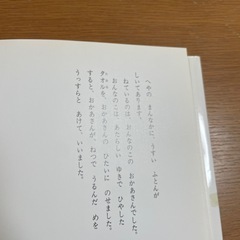 へやの まんなかに、うすい ふとんが
しいてあります。
ねているのは、おんなのこの おかあさんでした。
おんなのこは、あたらしい ゆきで ひやした
タオルを、おかあさんの ひたいに のせました。
すると、おかあさんが、ねつで うるんだ めを
うっすらと あけて、いいました。